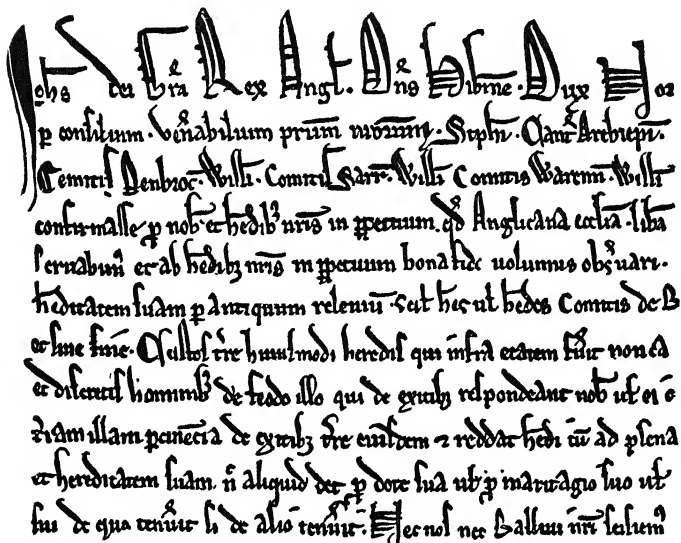 Johs dei gra Rex Angl. Dns Hibnie. Dux Nor
p consilium. Venabilium prum nrorum. Stephi. Cant Archiepi.
Comitis Penbroc. Willi. Comitis Sarr. Willi Comitis Warenn. Willi
confirmasse p nob et hedib nris in ppetuum. qd Anglicana ecclia. liba
servabim et ab hedibz nris in ppetuum bona fide volumus obsvari.
hditatem suam p antiquum releviu. Scil hes vl hedes Comitis de B
et sine fine. Custos tre hujusmodi heredis qui infra etatem fuit non ca
et discretis hominib de feodo illo qui de exitibz respondeant nob vl ei
tram illam ptinencia de exitibz tre eiusdem 7 reddat hedi cu ad plena
et hereditatem suam. n aliquid det p dote sua vl p maritagio suo vl
sui de quo tenuit si de alio tenuit. Nec nos nec Ballivi nri seisiem